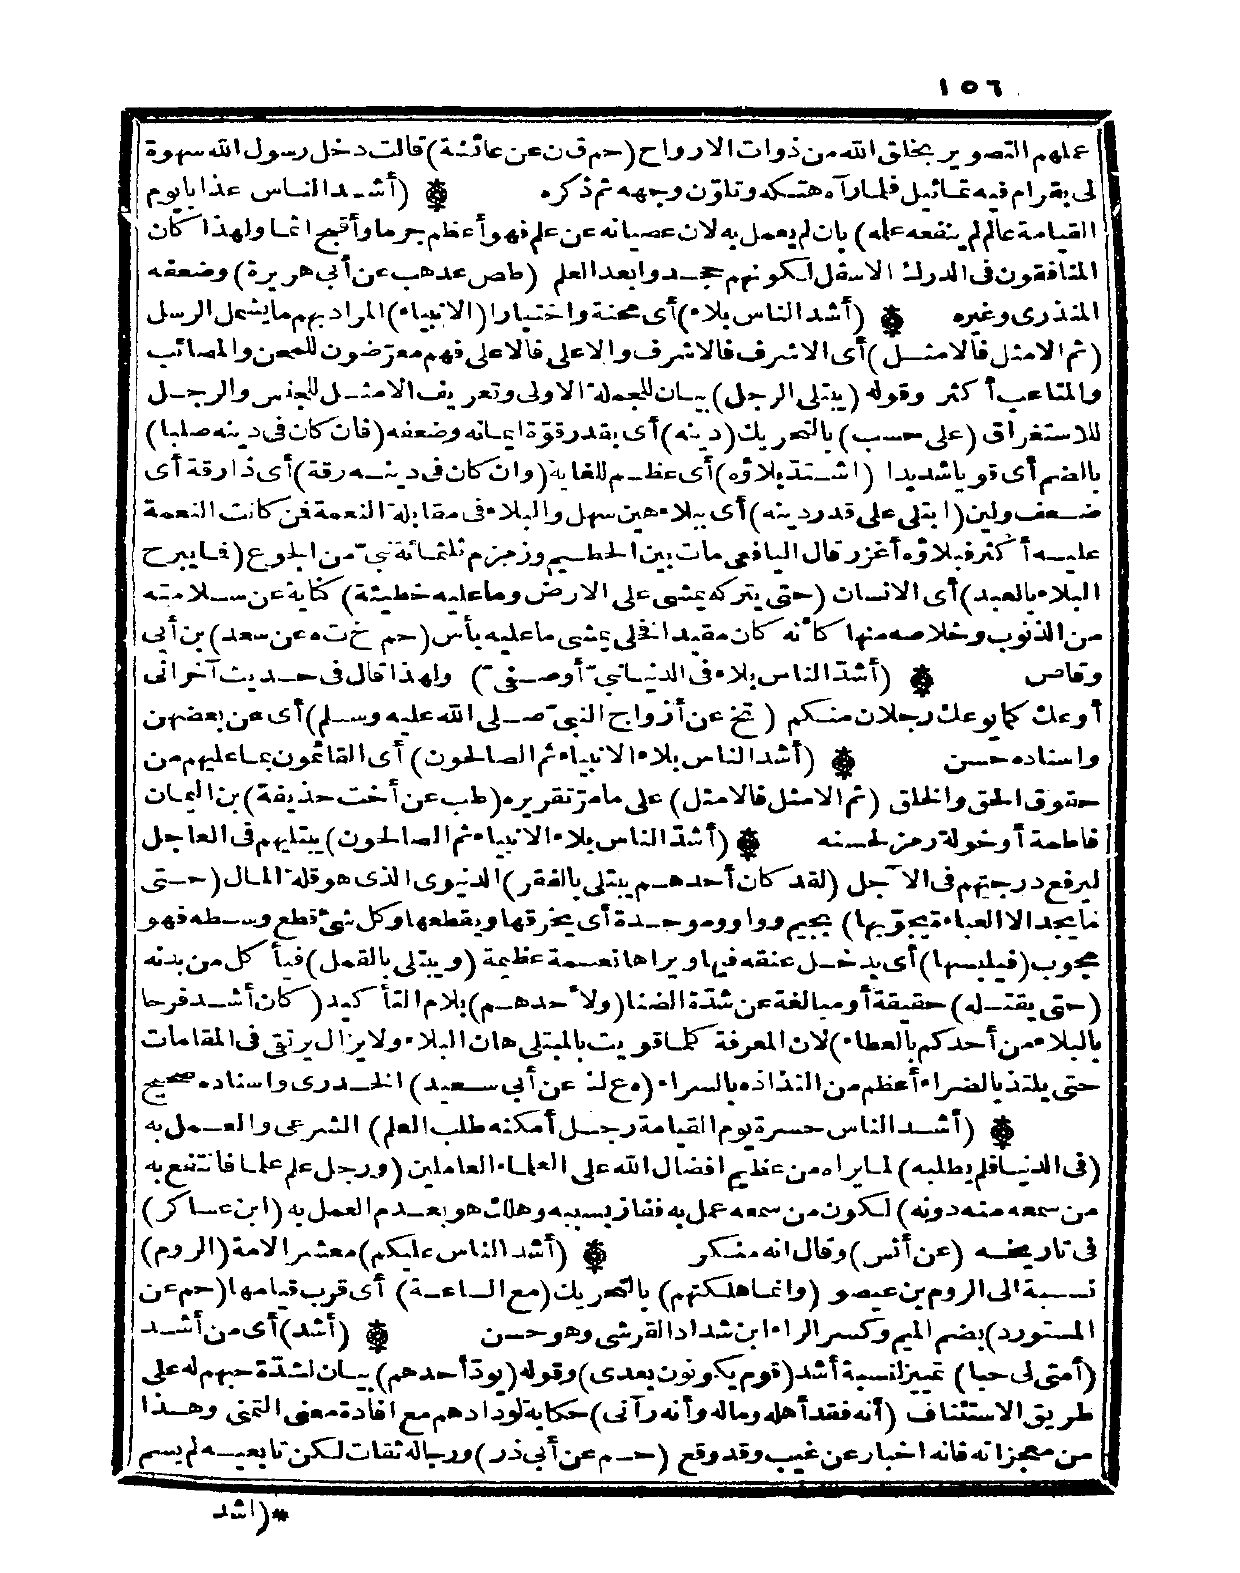 ١٥٦
عملهم التصوير بخلق الله من ذوات الارواح (حم ق ن عن عائشة) قالت دخل رسول الله سهوة
لى بقرام فيه تماثيل فلما رآه هتكه وتلوّن وجهه ثم ذكره ۞ (أشد الناس عذابا يوم
القيامة عالم لم ينفعه علمه) بان لم يعمل به لان عصيانه عن علم فهو أعظم جرما وأقبح اثما ولهذا كان
المنافقون فى الدرك الاسفل لكونهم جحدوا بعد العلم (طص عد هب عن أبى هريرة) وضعفه
المنذرى وغيره ۞ (أشد الناس بلاء) أى محنة واختبارا (الانبياء) المراد بهم ما يشمل الرسل
(ثم الامثل فالامثل) أى الاشرف فالاشرف والاعلى فالاعلى فهم معرّضون للمحن والمصائب
والمتاعب أكثر وقوله (يبتلى الرجل) بيان للجملة الاولى وتعريف الامثل للجنس والرجل
للاستغراق (على حسب) بالتحريك (دينه) أى بقدر قوّة ايمانه وضعفه (فان كان فى دينه صلبا)
بالضم أى قويا شديدا (اشتدّ بلاؤه) أى عظم للغاية (وان كان فى دينه رقة) أى ذا رقة أى
ضعف ولين (ابتلى على قدر دينه) أى ببلاء هين سهل والبلاء فى مقابلة النعمة فمن كانت النعمة
عليه أكثر فبلاؤه أغزر قال اليافعى مات بين الحطيم وزمزم ثلثمائة نبىّ من الجوع (فما يبرح
البلاء بالعبد) أى الانسان (حتى يتركه يمشى على الارض وما عليه خطيئة) كناية عن سلامته
من الذنوب وخلاصه منها كأنه كان مقيدا فخلى يمشى ما عليه بأس (حم خ ت ه عن سعد) بن أبى
وقاص ۞ (أشدّ الناس بلاء فى الدنيا نبىّ أو صفىّ) ولهذا قال فى حديث آخر انى
أوعك كما يوعك رجلان منكم (تخ عن أزواج النبىّ صلى الله عليه وسلم) أى عن بعضهن
واسناده حسن ۞ (أشد الناس بلاء الانبياء ثم الصالحون) أى القائمون بما عليهم من
حقوق الحق والخلق (ثم الامثل فالامثل) على ما مرّ تقريره (طب عن أخت حذيفة) بن اليمان
فاطمة أو خولة رمز لحسنه ۞ (أشدّ الناس بلاء الانبياء ثم الصالحون) يبتليهم فى العاجل
ليرفع درجتهم فى الآجل (لقد كان أحدهم يبتلى بالفقر) الدنيوى الذى هو قلة المال (حتى
ما يجد الا العباءة يجوّبها) بجيم وواو وموحدة أى يخرقها ويقطعها وكل شئ قطع وسطه فهو
مجوب (فيلبسها) أى يدخل عنقه فيها ويراها نعمة عظيمة (ويبتلى بالقمل) فيأكل من بدنه
(حتى يقتله) حقيقة أو مبالغة عن شدّة الضنا (ولاحدهم) بلام التأكيد (كان أشد فرحا
بالبلاء من أحدكم بالعطاء) لان المعرفة كلما قويت بالمبتلى هان البلاء ولا يزال يرتقى فى المقامات
حتى يلتذ بالضراء أعظم من التذاذه بالسراء (ه ع ك عن أبى سعيد) الخدرى واسناده صحيح
۞ (أشد الناس حسرة يوم القيامة رجل أمكنه طلب العلم) الشرعى والعمل به
(فى الدنيا فلم يطلبه) لما يراه من عظيم افضال الله على العلماء العاملين (ورجل علم علما فانتفع به
من سمعه منه دونه) لكون من سمعه عمل به ففاز بسببه وهلك هو بعدم العمل به (ابن عساكر)
فى تاريخه (عن أنس) وقال انه منكر ۞ (أشد الناس عليكم) معشر الامة (الروم)
نسبة الى الروم بن عيصو (وانما هلكتهم) بالتحريك (مع الساعة) أى قرب قيامها (حم عن
المستورد) بضم الميم وكسر الراء ابن شداد القرشى وهو حسن ۞ (أشد) أى من أشد
(أمتى لى حبا) تمييز لنسبة أشد (قوم يكونون بعدى) وقوله (يودّ أحدهم) بيان لشدّة حبهم له على
طريق الاستئناف (أنه فقد أهله وماله وأنه رآنى) حكاية لودادهم مع افادة معنى التمنى وهذا
من معجزاته فانه اخبار عن غيب وقد وقع (حم عن أبى ذر) ورجاله ثقات لكن تابعيه لم يسم
*(اشد